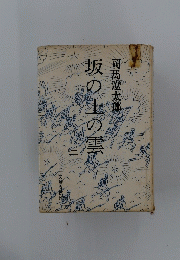 司馬遼太郎
坂の上の雲